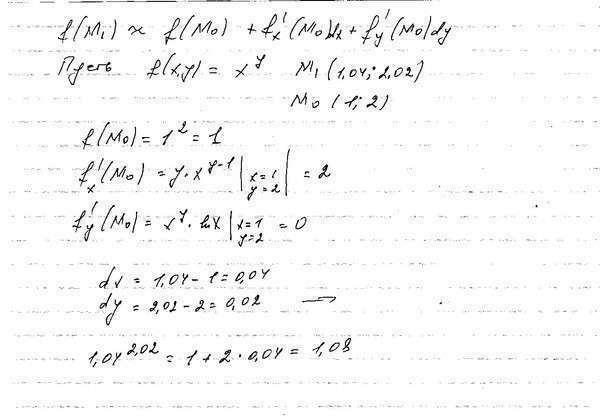 f(M₁) ≈ f(M₀) + f'ₓ(M₀)dx + f'ᵧ(M₀)dy
Пусть f(x,y) = x^y M₁(1,04; 2,02)
M₀(1; 2)
f(M₀) = 1² = 1
f'ₓ(M₀) = y·x^(y-1) | x=1 y=2 | = 2
f'ᵧ(M₀) = x^y · lnx | x=1 y=2 = 0
dx = 1,04 - 1 = 0,04
dy = 2,02 - 2 = 0,02 ⇒
1,04^2,02 = 1 + 2·0,04 = 1,08